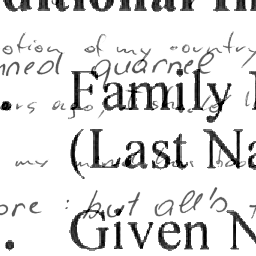 ditional In
otion of my country
nned quarrel
. Family
ago,
(Last Na
my
ore : but all's
. Given N